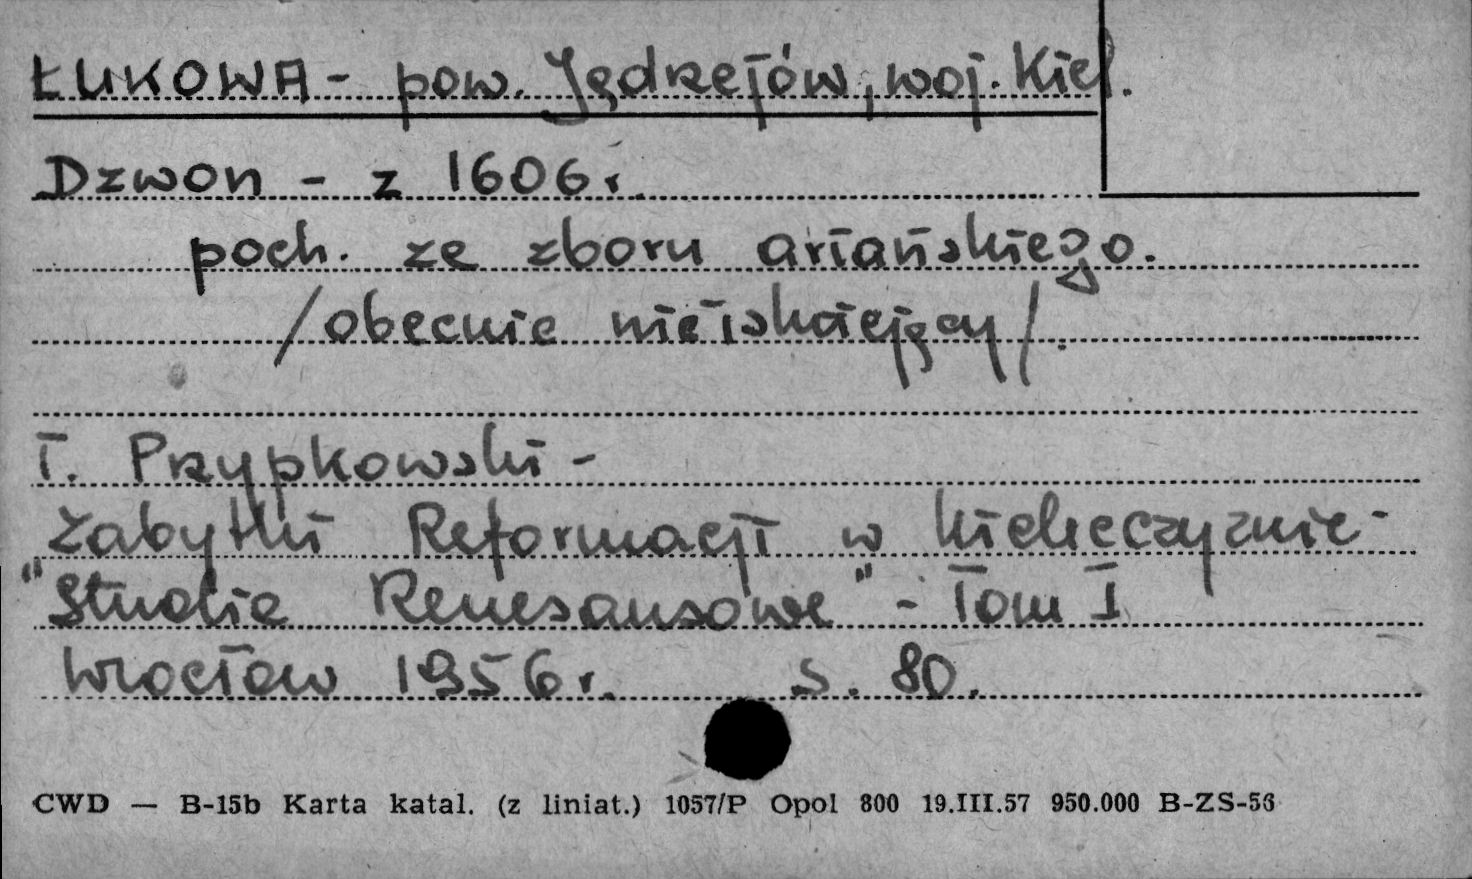 ŁUKOWA - pow. Jędrzejów, woj. Kiel.
Dzwon - z 1606 r.
poch. ze zboru ariańskiego.
/obecnie nieistniejący/.
T. Przypkowski -
Zabytki Reformacji w Kielecczyźnie -
"Studia Renesansowe" - Tom I
Wrocław 1956 r. s. 80.
CWD — B-15b Karta katal. (z liniat.) 1057/P Opol 800 19.III.57 950.000 B-ZS-56